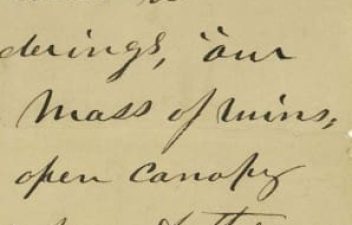 derings, "our
mass of ruins,
open canopy